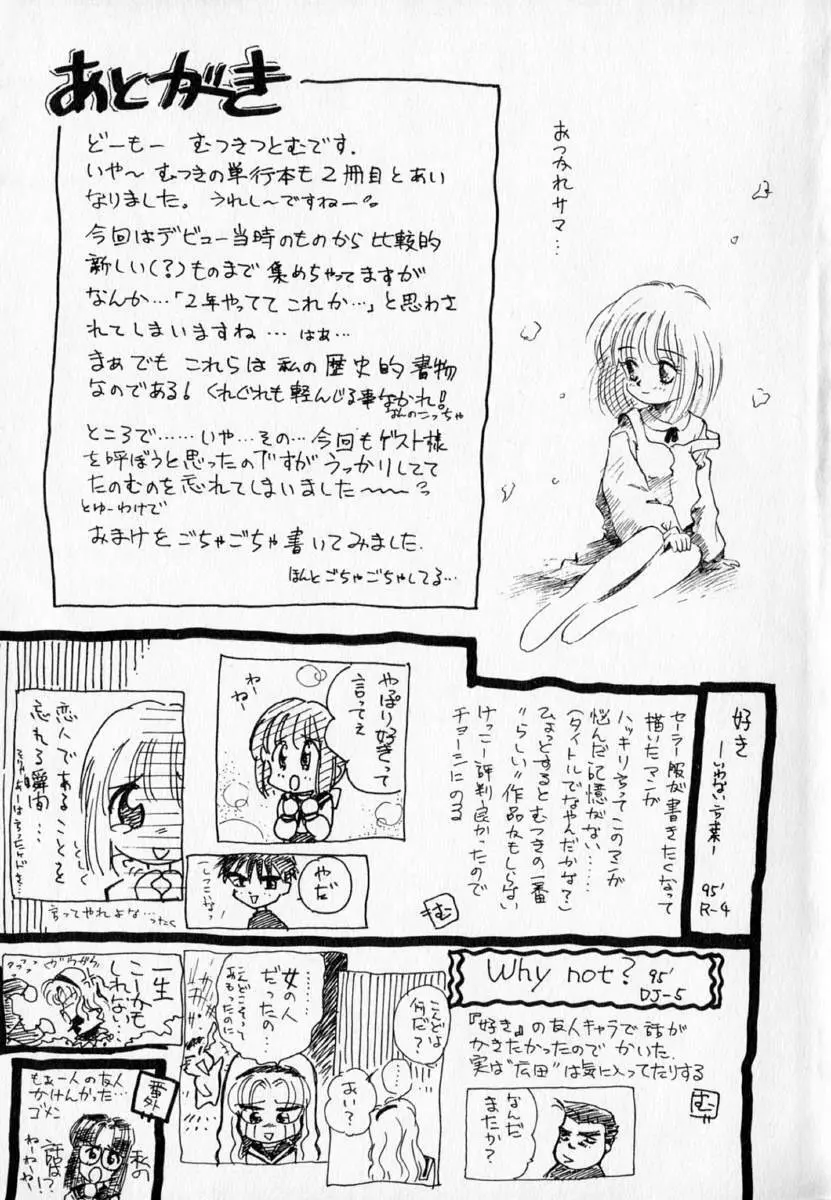 あとがき
どーもー むつきつとむです.
いや〜 むつきの単行本も2冊目とあい
なりました。うれし〜ですねー。
今回はデビュー当時のものから比較的
新しい(?)ものまで集めちゃってますが
なんか…「2年やってて これか…」と思わさ
れてしまいますね… はぁ…
まぁでも これらは私の歴史的書物
なのである! くれぐれも軽んじる事なかれ!
なんのこっちゃ
ところで……いや…その…今回もゲスト様
を呼ぼうと思ったのですがうっかりしてて
たのむのを忘れてしまいました〜〜
とゆーわけで
おまけをごちゃごちゃ書いてみました.
ほんとごちゃごちゃしてる…
おつかれサマ…
好き
ーいけない言葉ー
95'
R-4
セーラー服が書きたくなって
描いたマンガ
ハッキリ言ってこのマンガ
悩んだ記憶がない……
(タイトルでなやんだかな?)
ひょっとするとむつきの一番
"らしい"作品かもしらない
けっこー評判良かったので
チョーシにのる
む
やっぱり好きって
言ってェ
わー
ねー
やだ
しつこいな!
恋人であることを
忘れる瞬間…
しくしく
言ってやれよな… ったく
Why not?
95'
DJ-5
『好き』の友人キャラで話が
かきたかったので かいた.
実は"広田"は気に入ってたりする
む
なんだ
またか?
こんどは
何だ?
あい?
……女の人
だったの…
一生
こーかも
しれない…
番外
もぉ一人の友人
かけんかった…
ゴメン
私の
話は!?
ねーねー